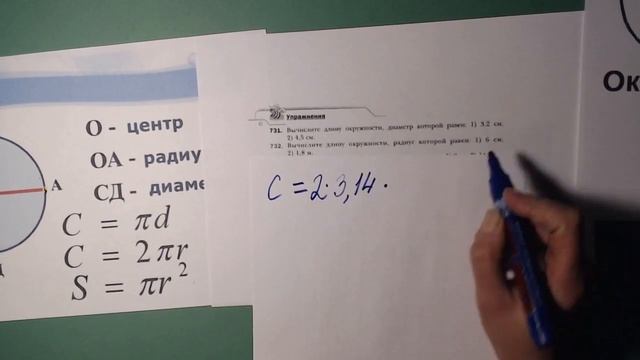 О - центр
ОА - радиу
СД - диаме
А
C = πd
C = 2πr
S = πr²
Упражнения
731. Вычислите длину окружности, диаметр которой равен: 1) 3,2 см.
2) 4,5 см.
732. Вычислите длину окружности, радиус которой равен: 1) 6 см.
2) 1,8 м.
C = 2·3,14 ·
Ок